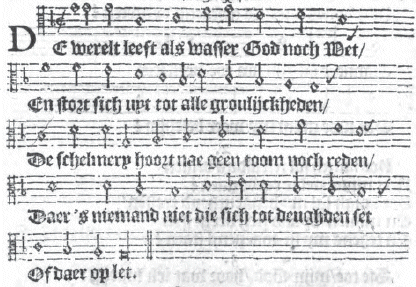 DE werelt leeft als wasser God noch Wet/
En stort sich upt tot alle groulijckheden/
De schelmery hoort nae geen toom noch reden/
Daer 's niemand niet die sich tot deughden set
Of daer op let.